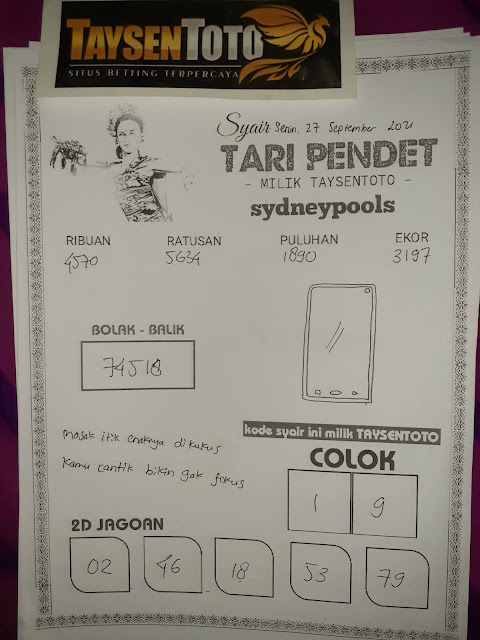 TAYSENTOTO
SITUS BETTING TERPERCAYA
Syair Senin, 27 September 2021
TARI PENDET
- MILIK TAYSENTOTO -
sydneypools
RIBUAN RATUSAN PULUHAN EKOR
4570 5634 1890 3197
BOLAK - BALIK
74518
masak itik enaknya dikukus
kamu cantik bikin gak fokus
kode syair ini milik TAYSENTOTO
COLOK
1 9
2D JAGOAN
02 46 18 53 79